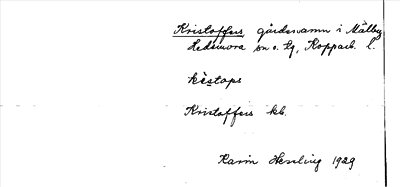 Kristoffers gårdsnamn i Mälby
Hedemora sn o. lg, Kopparb. l.
kèstops
Kristoffers kb.
Karin Hessling 1929